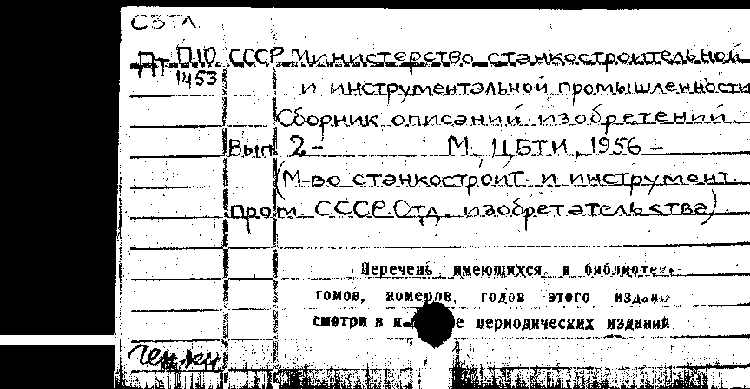 СЗТЛ
Пт П10 СССР Министерство станкостроительной
1453 и инструментальной промышленности
Сборник описаний изобретений
Вып. 2- М., ЦБТИ, 1956 -
(М-во станкостроит. и инструмент.
пром. СССР. Отд. изобретательства)
Перечень имеющихся в библиотеке
томов, номеров, годов этого издания
смотри в периодических изданий